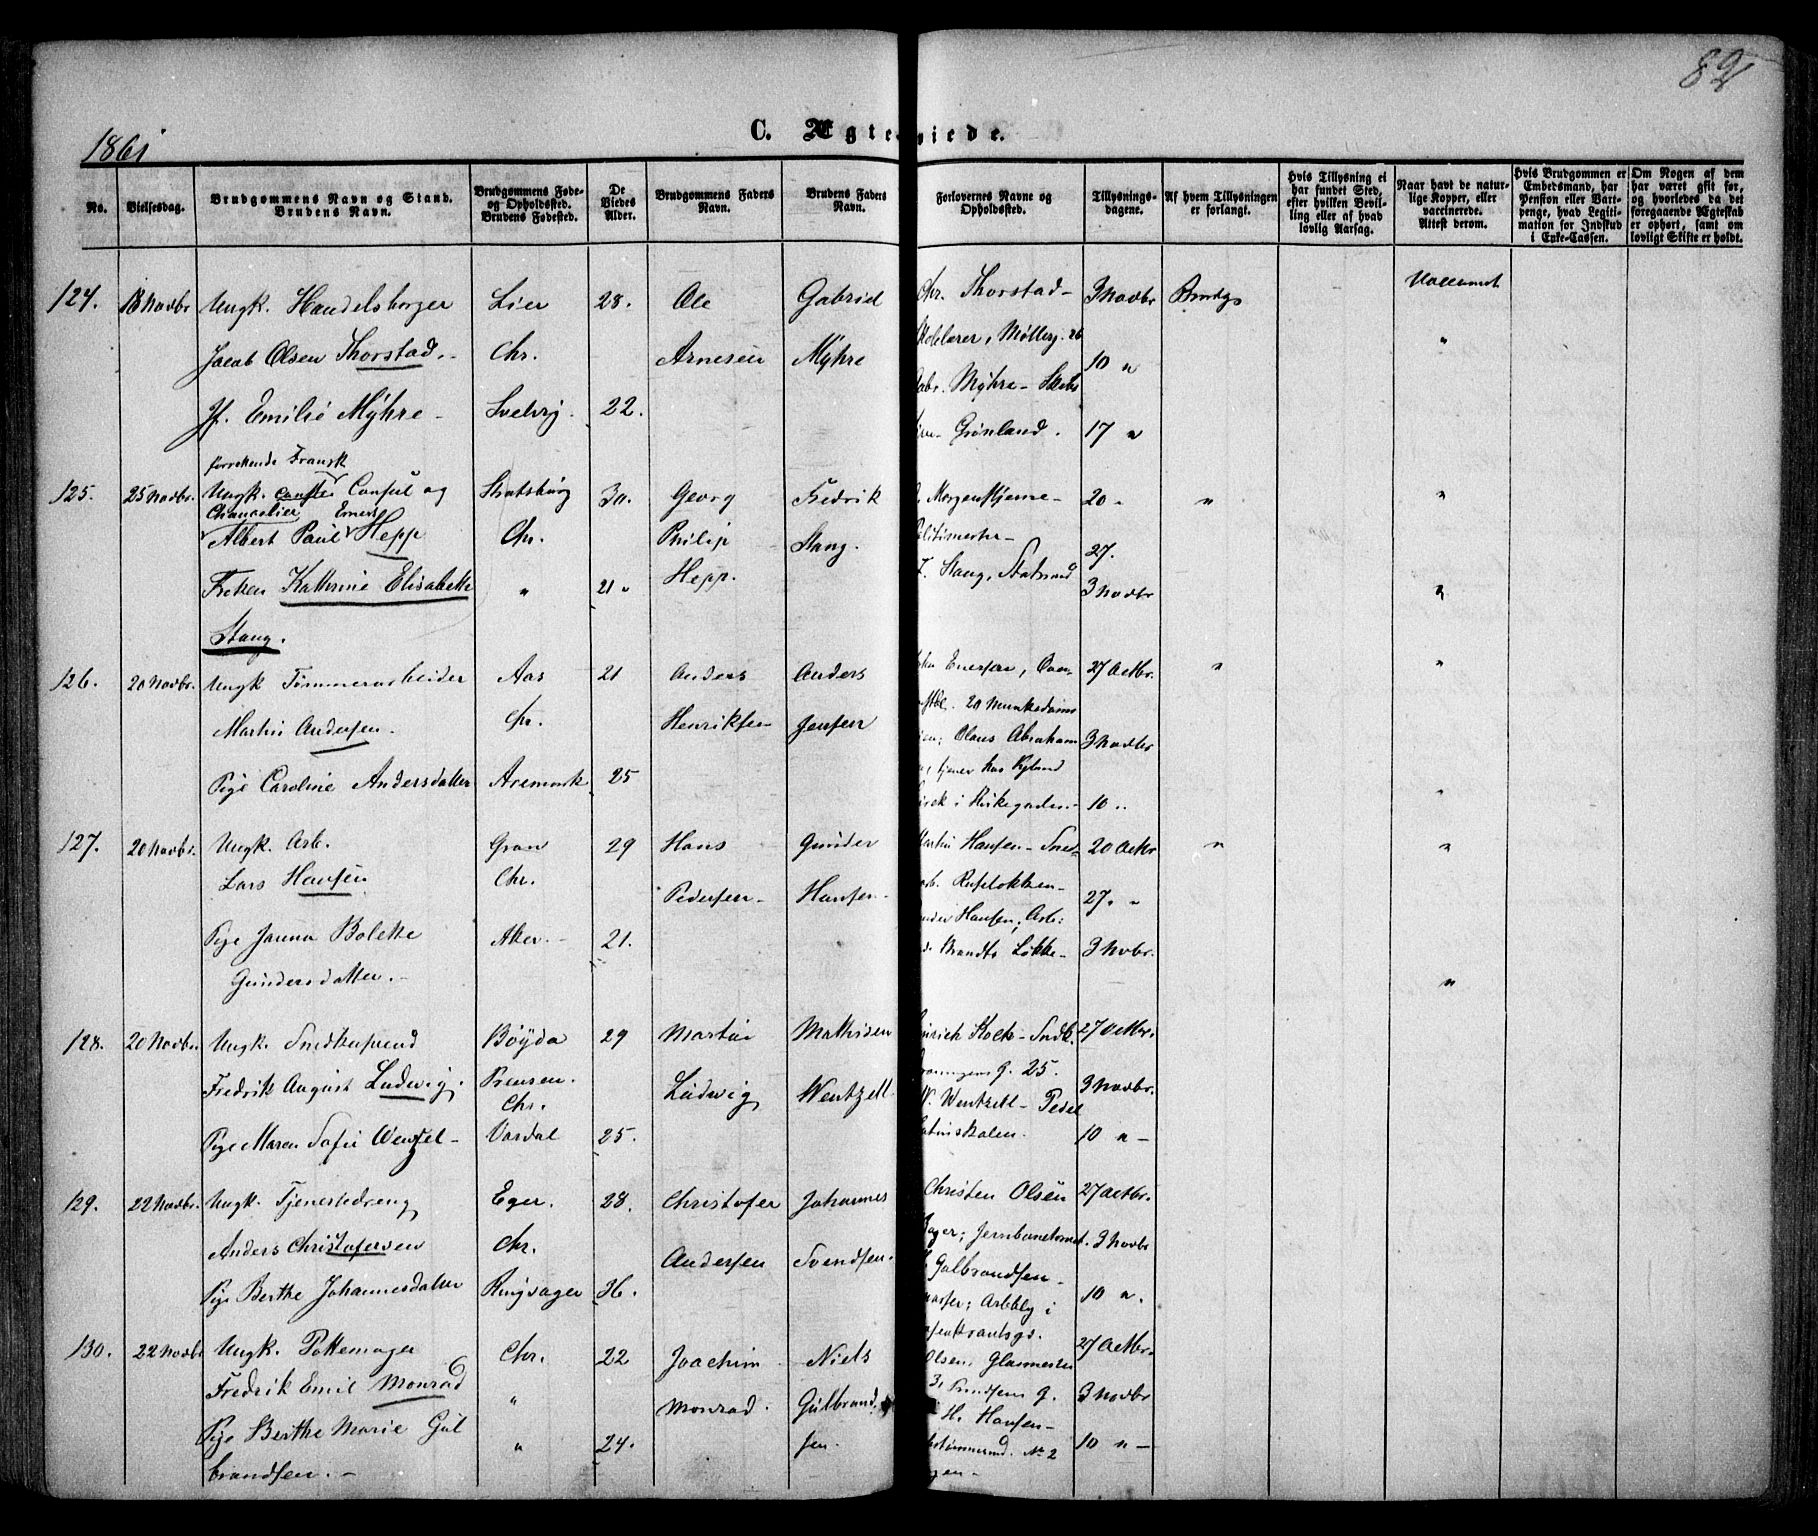 82
1861
C. Ægteviede.
No.
Vielsesdag.
Brudgommens Navn og Stand.
Brudens Navn.
Brudgommens Føde-
og Opholdssted.
Brudens Fødested.
De
Viedes
Alder.
Brudgommens Faders
Navn.
Brudens Faders
Navn.
Forlovernes Navne og
Opholdssted.
Tillysnings-
dagene.
Af hvem Tillysningen
er forlangt.
Hvis Tillysning ei
har fundet Sted,
efter hvilken Bevil-
ling eller af hvad
lovlig Aarsag.
Naar havt de natur-
lige Kopper, eller
vaccinerede.
Attest derom.
Hvis Brudgommen er
Embedsmand, har
Pension eller Vart-
penge, hvad Legiti-
mation for Indskud
i Enke-Cassen.
Om Nogen af dem
har været gift før,
og hvorledes da det
foregaaende Ægteskab
er ophørt, samt om
lovligt Skifte er holdt.
124. 13 Novbr Ungk. Handelsborger Lier 28. Ole Gabriel Chr. Thorstad- 3 Novbr Brudgs
Jacob Olsen Thorstad. Chr. Arnesen Myhre Møllerg. 26 10 "
Jf. Emilie Myhre Svelvig. 22. Gabr. Myhre - Skibs
Grønland. 17 "
Fransk
125. 25 Novbr. Ungk. Consul og Stratsbürg 30. Georg Fredrik Morgenstjerne- 20 " "
Chancelier Ernest
Albert Paul Hepp Chr. Philip Stang. Politimester- 27.
Frøken Kathrine Elisabethe " 21 " Hepp. F. Stang, Statsraad 3 Novbr "
Stang.
126. 20 Novbr. Ungk Tømmerarbeider Aas 21 Anders Anders 27 Octbr. " "
Martin Andersen. Chr. Henriksen Jensen 20 Munkedams
Olaus Abraham 3 Novbr
Pige Caroline Andersdatter Aremark 25 tjener hos
i Kirkegaden. 10 "
127. 20 Novbr. Ungk. Arb. Gran 29 Hans Gunder Martin Hansen - Sned 20 Octbr " "
Lars Hansen Chr. Pedersen Hansen 27. "
Hansen, Arb:
Pige Janna Bolette Aker. 21. Brandts Løkke 3 Novbr.
Gundersdatter. "
128. 20 Novbr Ungk. Snedkersvend Böyda 29 Martin Mathisen Koch - Sndk. 27 Octbr.
Fredrik August Ludwig. Preusen. Ludwig Wentzell g. 25. 3 Novbr.
Chr. W. Wentzell - Pedel
Pige Maren Sofie Wentzel Vardal 25. 10 "
129. 22 Novbr. Ungk. Tjenestedreng Eger. 28. Christofer Johannes Christen Olsen 27 Octbr.
Anders Christofersen Chr. Andersen Svendsen. Jernbanetomt. 3 Novbr
Pige Berthe Johannesdatter Ringsager 36. Gulbrandsen 10 ".
130. 22 Novbr Ungk. Pottemager Chr. 22 Joachim Niels Olsen, Glasmester 27 Octbr.
Fredrik Emil Monrad " Monrad. Gulbrand- g. 3 Novbr
Pige Berthe Marie Gul " 24. sen. H. Hansen No 2 10 "
brandsen.